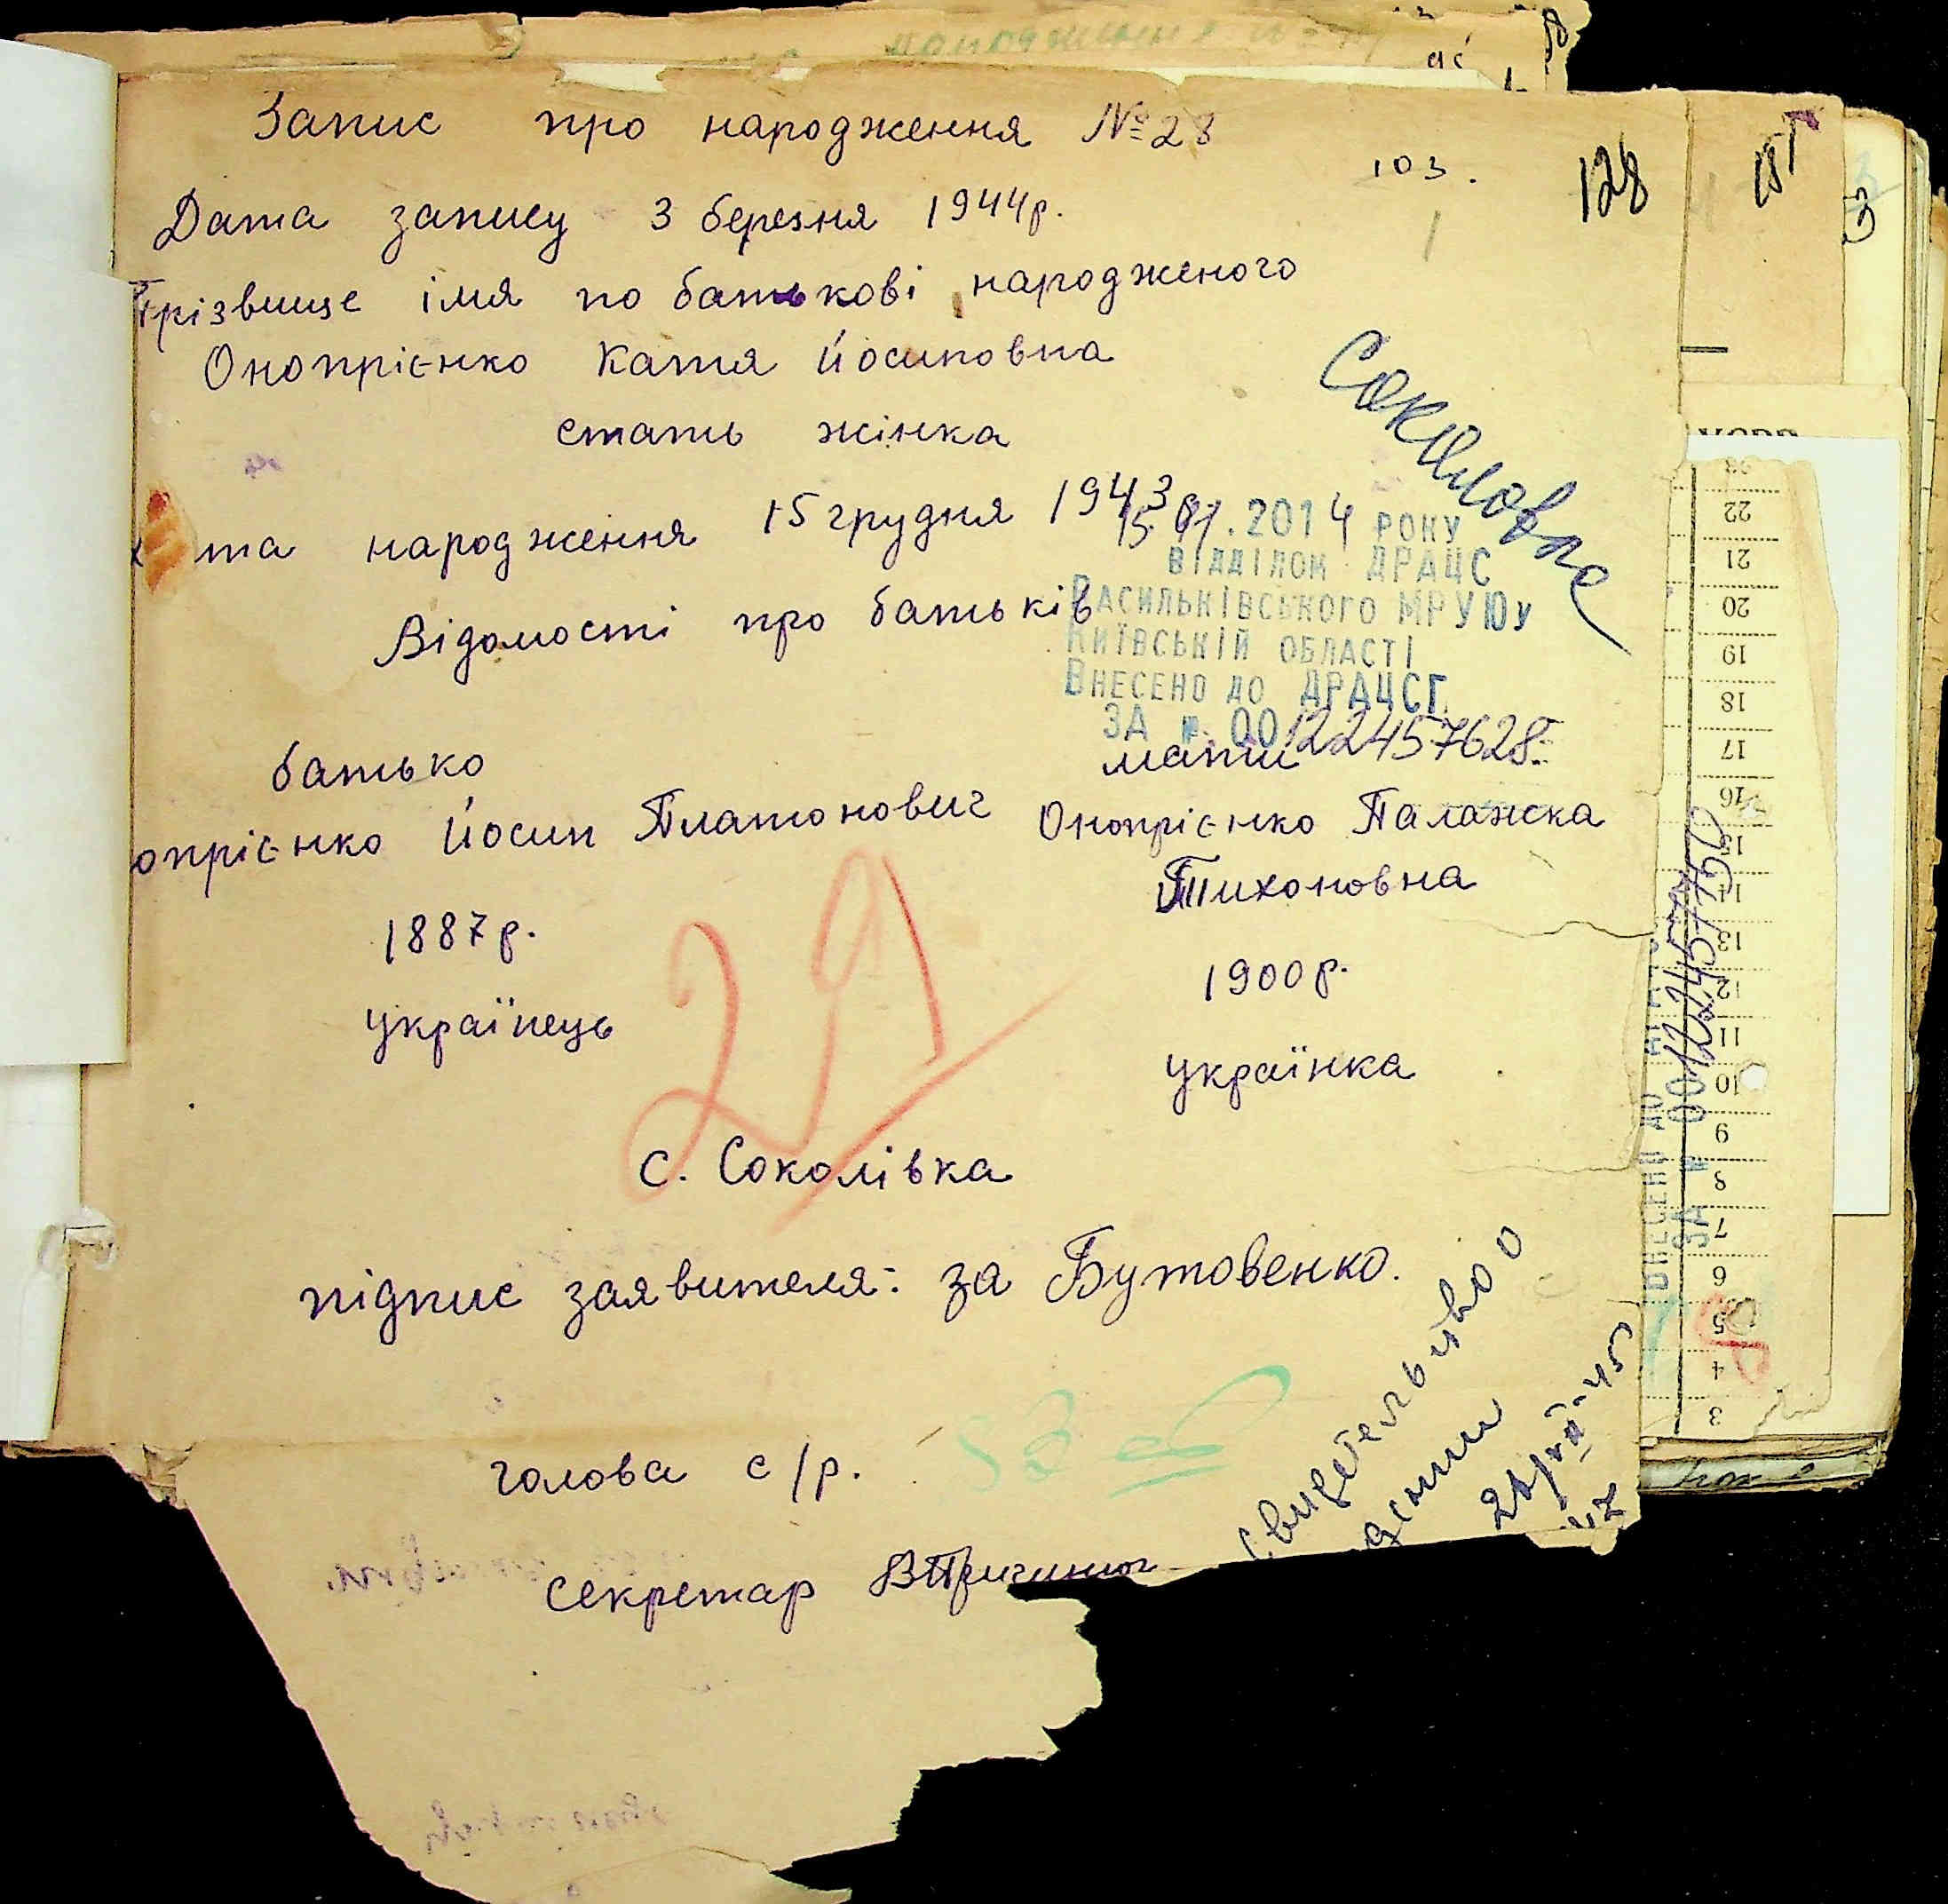 Запис про народження № 28
103.
128
Дата запису 3 березня 1944р.
Прізвище імя по батькові народженого
Онопрієнко Катя Йосиповна
стать жінка
та народження 15 грудня 1943
15.01.2014 РОКУ
ВІДДІЛОМ ДРАЦС
ВАСИЛЬКІВСЬКОГО МРУЮ У
КИЇВСЬКІЙ ОБЛАСТІ
ВНЕСЕНО ДО ДРАЦСГ
ЗА № 00122457628
Відомості про батьків
батько мати
опрієнко Йосип Платонович Онопрієнко Палажка
Тихоновна
1887р. 1900р.
українець українка
29
с. Соколівка
підпис заявителя: за Бутовенко.
голова с/р.
секретар
Свидетельство о
22
21
20
19
18
17
16
15
14
13
12
11
10
9
8
7
6
5
4
3
ВНЕСЕНО ДО
ЗА №